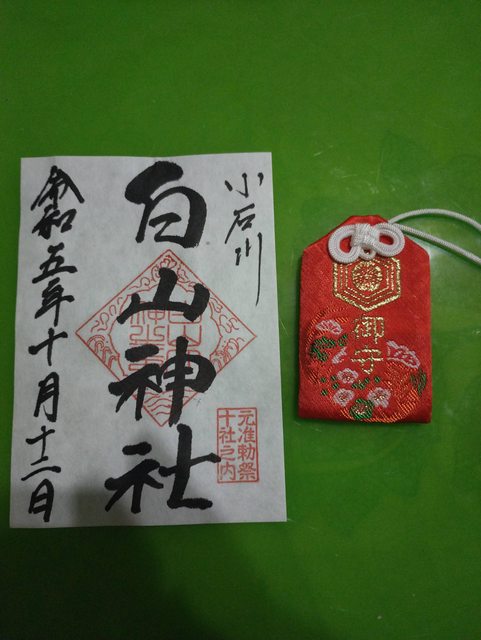 小石川
白山神社
元准勅祭
十社之内
令和五年十月十二日
御守